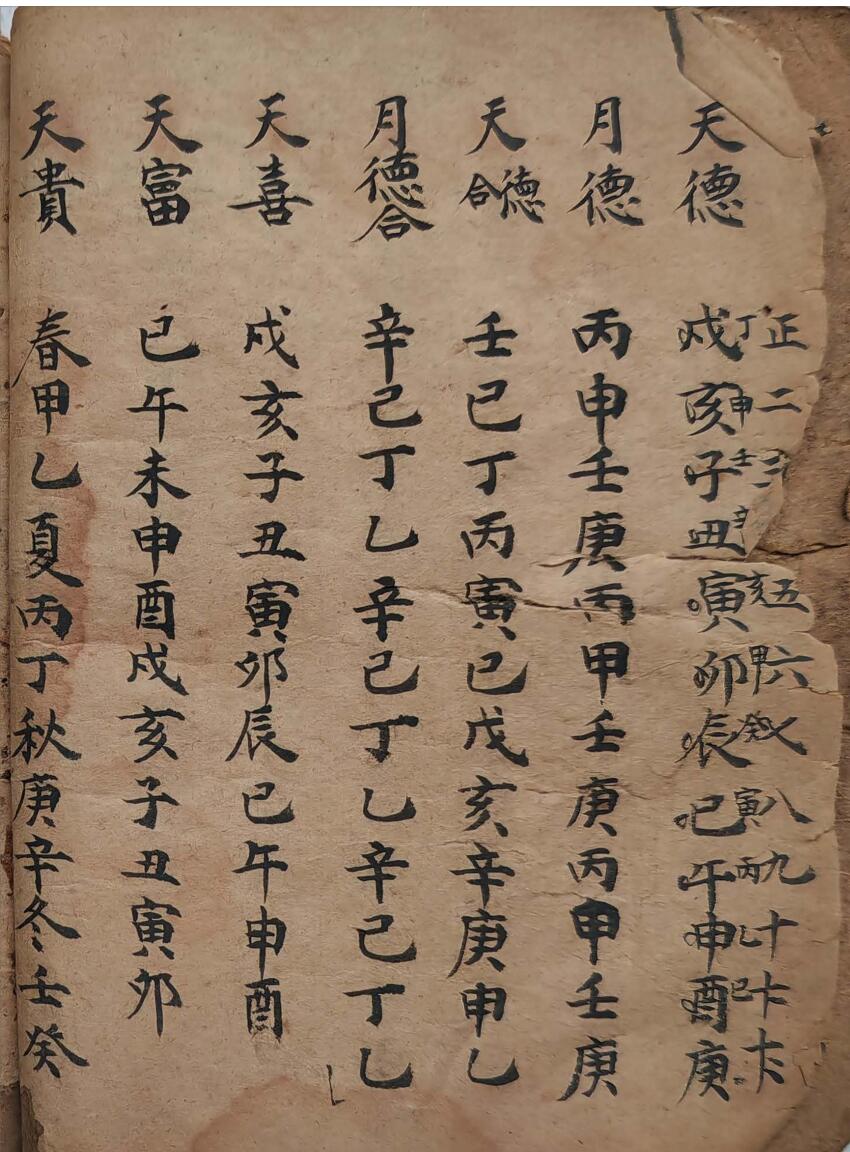 正二三五六七八九十十一十二
丁申壬辛亥甲癸寅丙乙巳
天德 戌亥子丑寅卯辰巳午申酉庚
月德 丙申壬庚丙甲壬庚丙甲壬庚
天德合 壬巳丁丙寅巳戊亥辛庚申乙
月德合 辛己丁乙辛己丁乙辛己丁乙
天喜 戌亥子丑寅卯辰巳午申酉
天富 巳午未申酉戌亥子丑寅卯
天貴 春甲乙夏丙丁秋庚辛冬壬癸